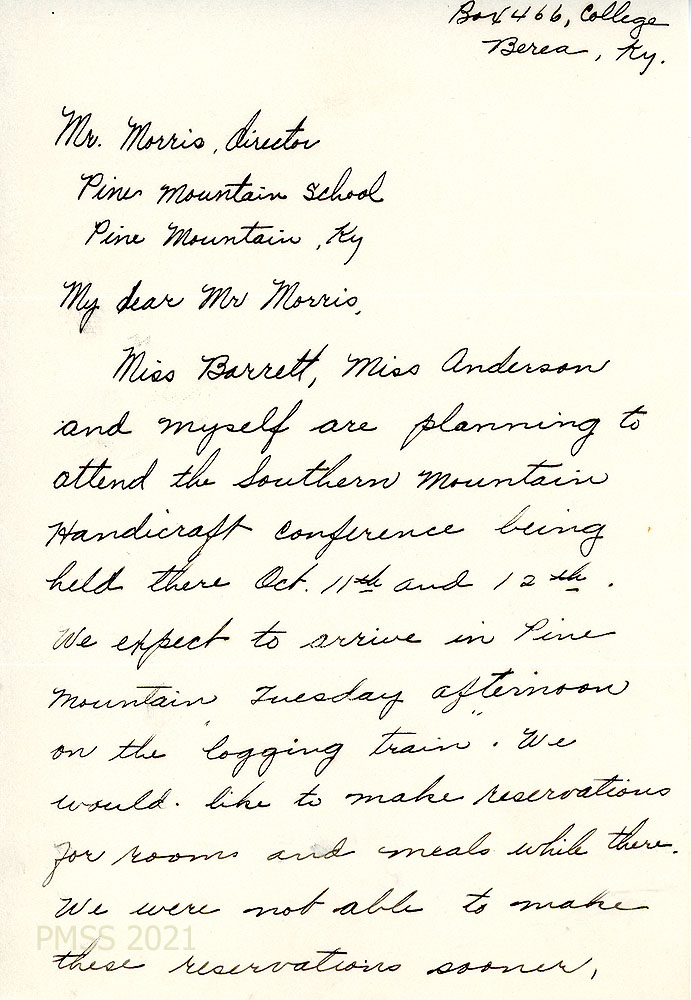 Box 466, College
Berea, Ky.
Mr. Morris, director
Pine Mountain School
Pine Mountain, Ky
My dear Mr Morris,
Miss Barrett, Miss Anderson
and myself are planning to
attend the Southern Mountain
Handicraft conference being
held there Oct. 11th and 12th.
We expect to arrive in Pine
Mountain Tuesday afternoon
on the "logging train". We
would like to make reservations
for rooms and meals while there.
We were not able to make
these reservations sooner,
PMSS 2021